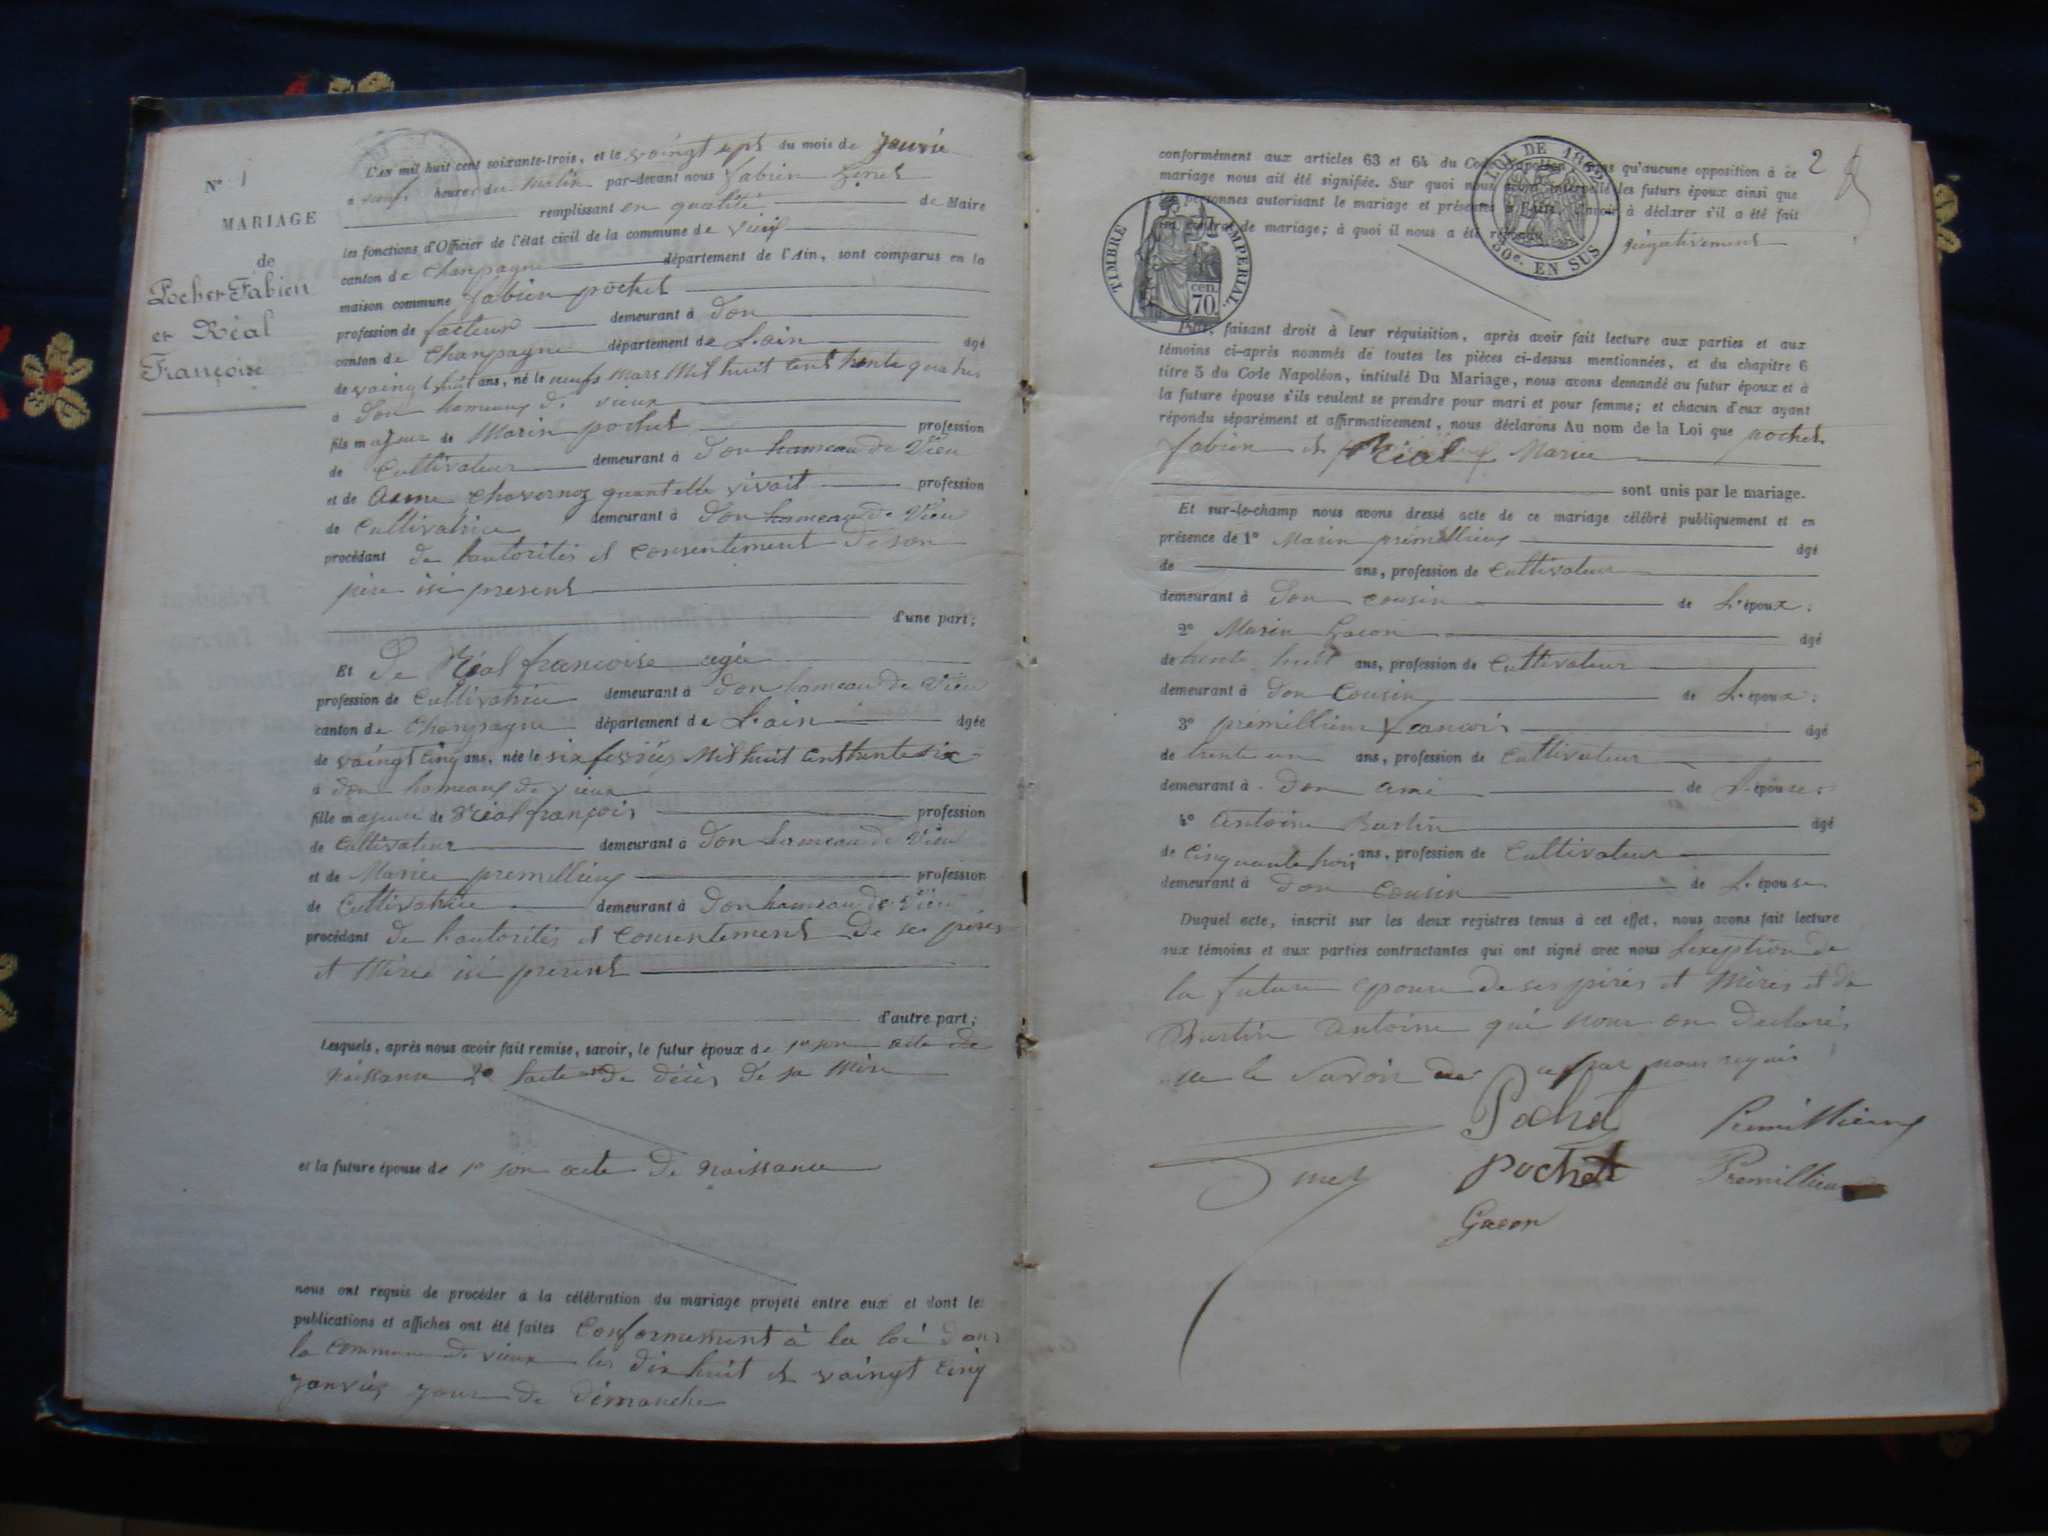 N° 1
MARIAGE
de
Pochet Fabien
et Réal
Françoise
L'an mil huit cent soixante-trois, et le vaingt sept du mois de Janvié
à neuf heures du matin par-devant nous fabien
remplissant en qualité de Maire
les fonctions d'Officier de l'état civil de la commune de vieu
canton de Champagne département de l'Ain, sont comparus en la
maison commune fabien pochet
profession de facteur demeurant à don
canton de Champagne département de L'ain âgé
de vaingt huit ans, né le neufs mars Mil huit Cent trente quatre
à don hameaux de vieux
fils majeur de Marin pochet profession
de Cultivateur demeurant à Don hameau de Vieu
et de chavornoz quant elle vivait profession
de Cultivatrice demeurant à Don hameau de Vieu
procédant de l'autorités et Consentement de son
père isi present
d'une part;
Et De Réal francoise agée
profession de Cultivatrice demeurant à Don hameau de Vieu
canton de Champagne département de L'ain âgée
de vaingt Cinq ans, née le six fevriés Mil huit Cent trente six
à don hameaux de vieux
fille majeure de Réal françois profession
de Cultivateur demeurant à Don hameau de Vieu
et de Marie premillieux profession
de Cultivatrice demeurant à Don hameau de Vieu
procédant de l'autorités et Consentement De ses pères
et Mère isi present
d'autre part;
Lesquels, après nous avoir fait remise, savoir, le futur époux de 1° son acte de
Naissance 2° l'acte de décès de sa Mère
et la future épouse de 1° son acte de Naissance
nous ont requis de procéder à la célébration du mariage projeté entre eux et dont les
publications et affiches ont été faites Conformement à la loi dans
la commune de vieux les dix huit et vaingt Cinq
Janviés Jour de Dimanche
2
conformément aux articles 63 et 64 du Code Napoléon, sans qu'aucune opposition à ce
mariage nous ait été signifiée. Sur quoi nous avons interpellé les futurs époux ainsi que
les personnes autorisant le mariage et présentes à l'acte, d'avoir à déclarer s'il a été fait
un contrat de mariage; à quoi il nous a été répondu négativement
LOI DE 1862
80c. EN SUS
TIMBRE IMPERIAL.
cen.
70.
faisant droit à leur réquisition, après avoir fait lecture aux parties et aux
témoins ci-après nommés de toutes les pièces ci-dessus mentionnées, et du chapitre 6
titre 5 du Code Napoléon, intitulé Du Mariage, nous avons demandé au futur époux et à
la future épouse s'ils veulent se prendre pour mari et pour femme; et chacun d'eux ayant
répondu séparément et affirmativement, nous déclarons Au nom de la Loi que pochet
fabien et Réal Marie
sont unis par le mariage.
Et sur-le-champ nous avons dressé acte de ce mariage célébré publiquement et en
présence de 1° Marin prémillieux âgé
de ans, profession de Cultivateur
demeurant à Don cousin de L'époux;
2° Marin Gacon âgé
de trente huit ans, profession de Cultivateur
demeurant à Don Cousin de L'époux;
3° prémillieux francois âgé
de trente un ans, profession de Cultivateur
demeurant à Don ami de L'épouse;
4° Antoine Burtin âgé
de Cinquante trois ans, profession de Cultivateur
demeurant à Don Cousin de L'épouse
Duquel acte, inscrit sur les deux registres tenus à cet effet, nous avons fait lecture
aux témoins et aux parties contractantes qui ont signé avec nous l'exeption de
la future epouse de ses pères et Mères et de
Burtin Antoine qui nous on Declarés
ne le savoir de par nous requis
Pochet Premillieux
pochet Premillieux
Gacon